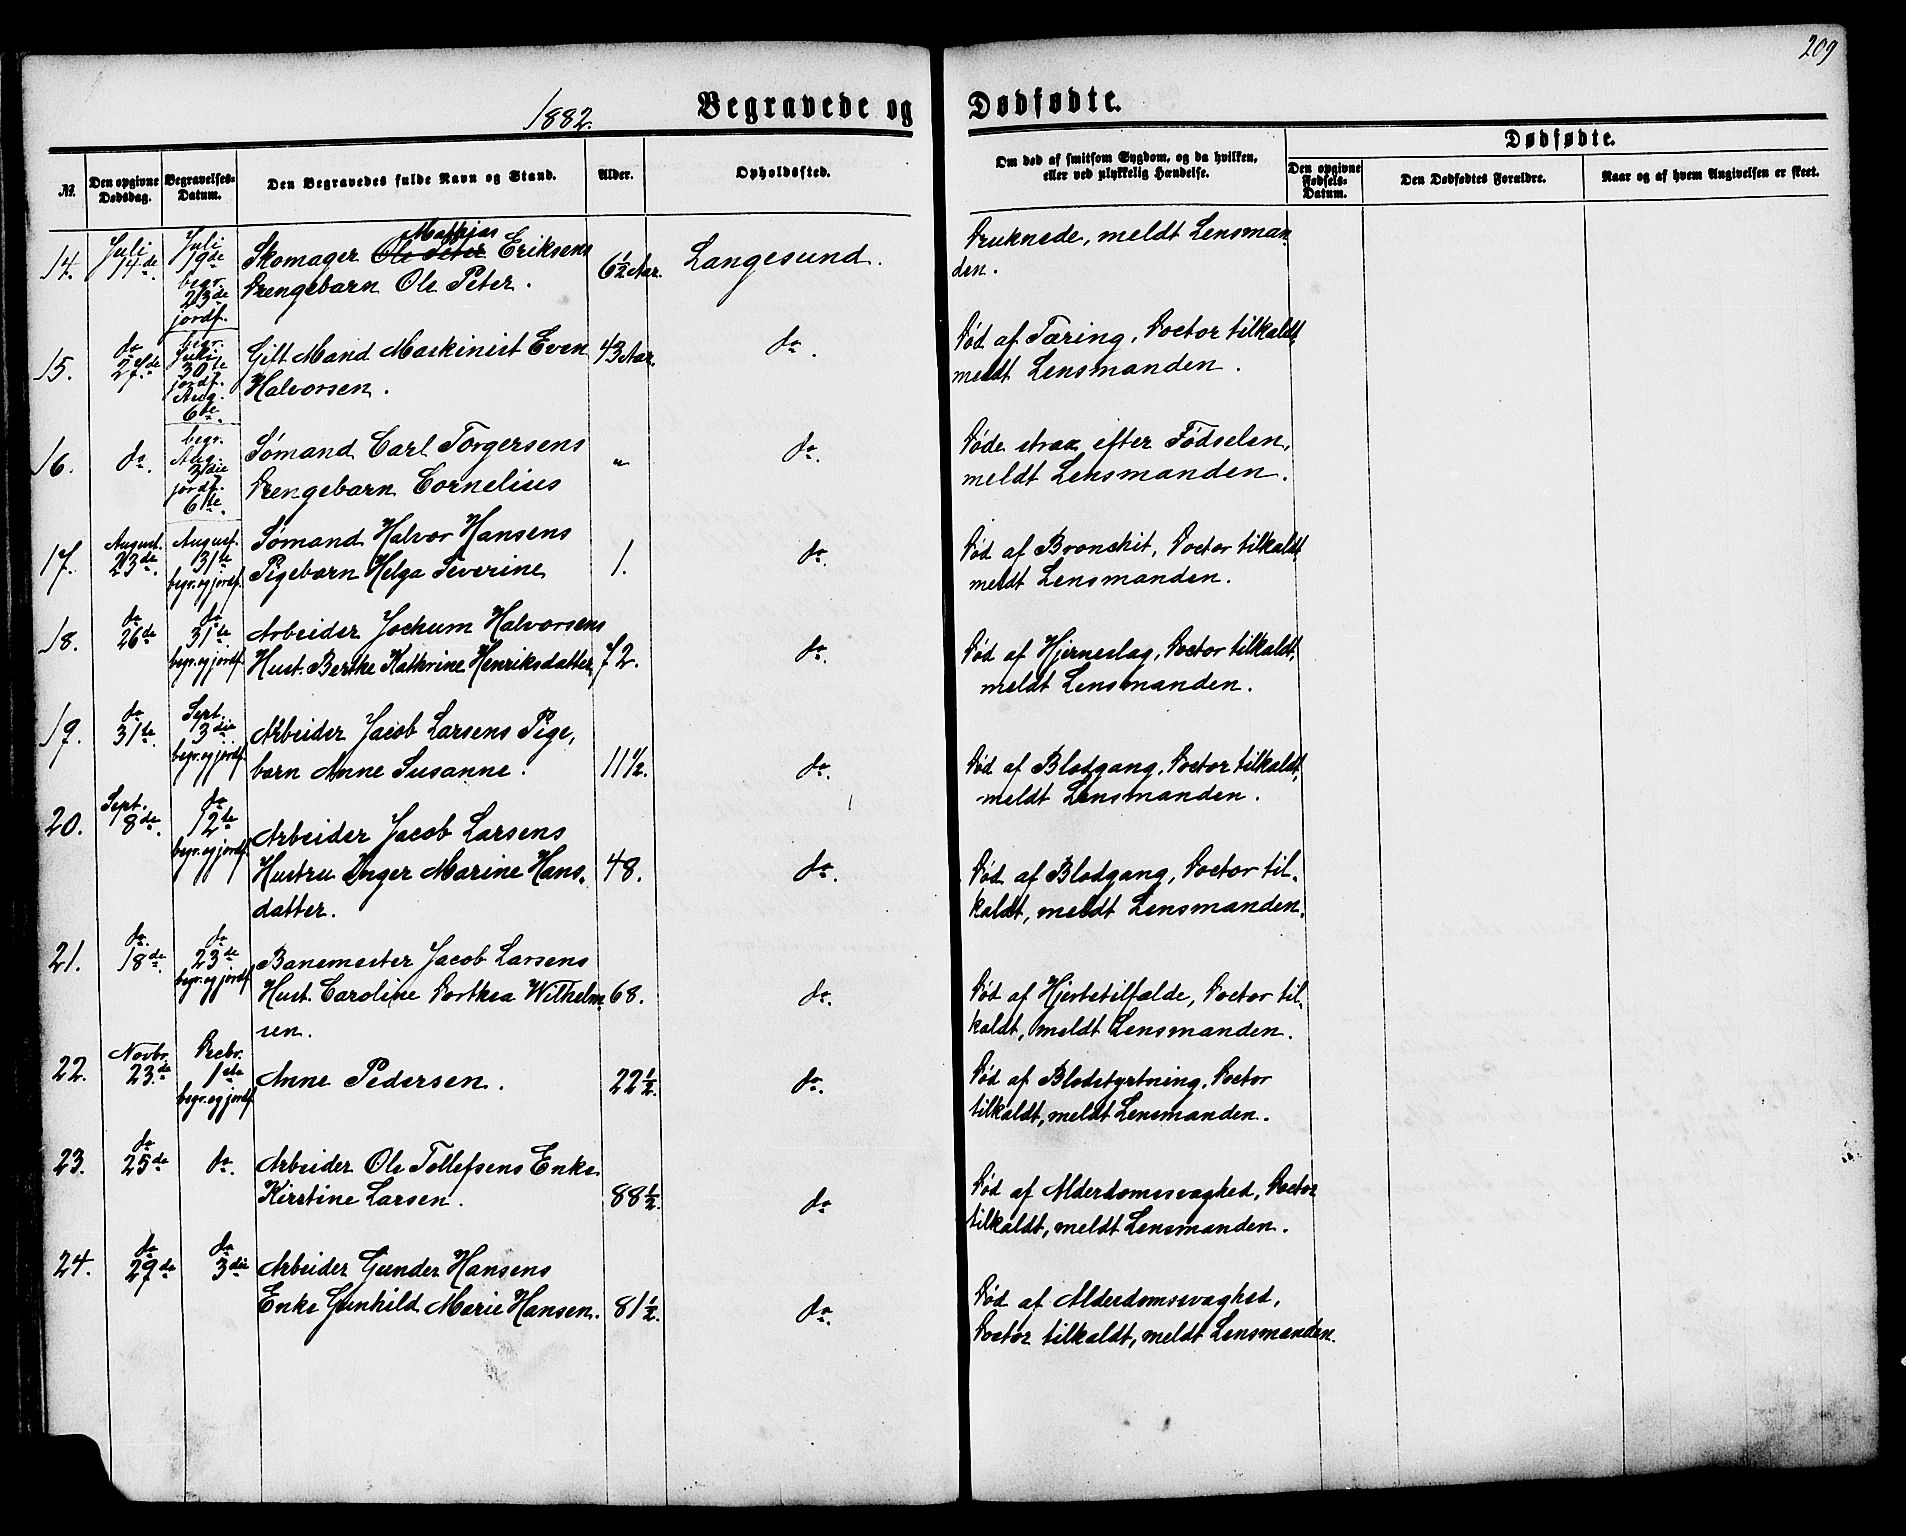 209
1882.
Begravede og Dødfødte.
Dødfødte.
No.
Den opgivne Dødsdag.
Begravelses-Datum.
Den Begravedes fulde Navn og Stand.
Alder.
Opholdssted.
Om død af smitsom Sygdom, og da hvilken, eller ved ulykkelig Hændelse.
Den opgivne Fødsels-Datum.
Den Dødfødtes Forældre.
Naar og af hvem Angivelsen er skeet.
14. Juli 14de. Juli 19de begr. 23de jordf. Skomager Ole Peter Mathias Eriksens 6½ Aar. Langesund. Druknede, meldt Lensman
Drengebarn Ole Peter. den.
15. do 27de. begr. Juli 30te jordf. Aug. 6te. Gift Mand Maskinist Even 43 Aar. do. Død af Tæring, Doctor tilkaldt,
Halvorsen. meldt Lensmanden.
16. do. begr. Aug. 3die jordf. 6te. Sømand Carl Torgersens " do. Døde strax efter Fødselen,
Drengebarn Cornelius meldt Lensmanden.
17. August. 23de. August. 31te begr. og jordf. Sømand Halvor Hansens 1. do. Død af Bronchit, Doctor tilkaldt,
Pigebarn Helga Severine meldt Lensmanden.
18. do 26de do 31te begr. og jordf. Arbeider Jochum Halvorsens 72. do. Død af Hjerneslag, Doctor tilkaldt,
Hust. Berthe Kathrine Henriksdatter, meldt Lensmanden.
19. do 31te. Sept. 3die begr. og jordf. Arbeider Jacob Larsens Pige, 11½. do. Død af Blodgang, Doctor tilkaldt,
barn Anne Susanne. meldt Lensmanden.
20. Sept. 8de. do 12te begr. og jordf. Arbeider Jacob Larsens 48. do. Død af Blodgang, Doctor til,
Hustru Inger Marine Hans, kaldt, meldt Lensmanden.
datter.
21. do. 18de. do 23de begr. og jordf. Banemester Jacob Larsens 68. do. Død af Hjertetilfælde, Doctor til,
Hust. Caroline Dorthea Wilhelm kaldt, meldt Lensmanden.
sen.
22. Novbr. 23de Decbr. 1ste begr. og jordf. Anne Pedersen. 22½. do. Død af Blodstyrtning, Doctor
tilkaldt, meldt Lensmanden.
23. do 25de do. Arbeider Ole Tollefsens Enke 88½. do Død af Alderdomssvaghed, Doctor
Kirstine Larsen. tilkaldt, meldt Lensmanden.
24. do 29de do 3die Arbeider Gunder Hansens 81½. do. Død af Alderdomssvaghed,
Enke Gunhild Marie Hansen. Doctor tilkaldt, meldt Lensmanden.